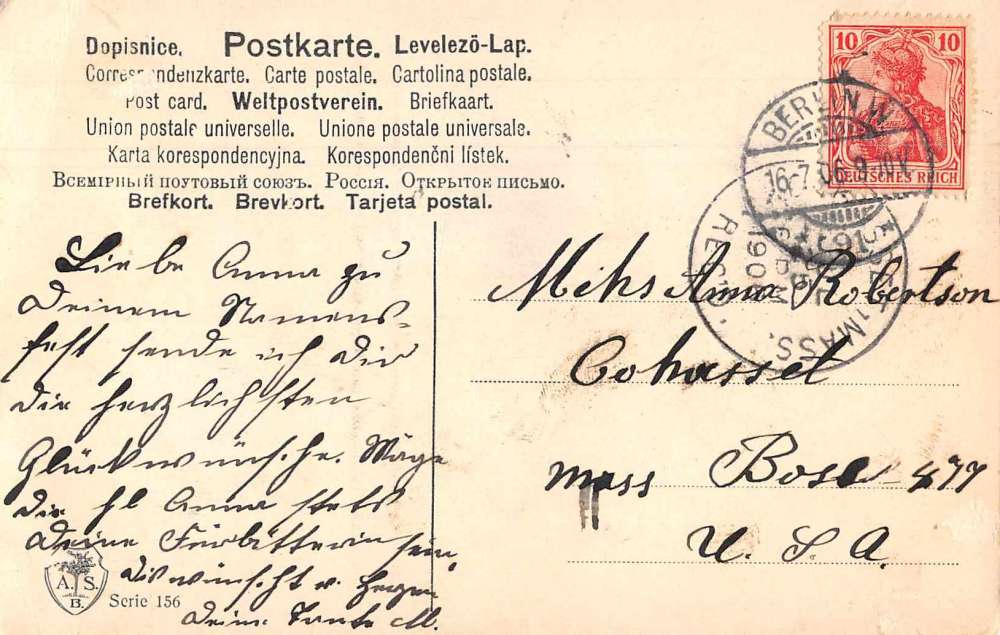 Dopisnice. Postkarte. Levelező-Lap.
Correspondenzkarte. Carte postale. Cartolina postale.
Post card. Weltpostverein. Briefkaart.
Union postale universelle. Unione postale universale.
Karta korespondencyjna. Korespondenčni lístek.
Всемірный поутовый союзъ. Россія. Открытое письмо.
Brefkort. Brevkort. Tarjeta postal.
10 10
DEUTSCHES REICH
BERLIN W
16-7 06 9-10V
* 9l *
MASS.
REC'D
190
Liebe Anna zu
Deinem Namens-
fest sende ich Dir
die herzlichsten
Glückwünsche. Möge
die hl Anna stets
Deine Fürbitterin sein,
dis wünscht v. Herzen
Deine Tante M.
Mihs Anna Robertson
Cohasset
Mass Box 477
U. S. A.
A. S.
B.
Serie 156